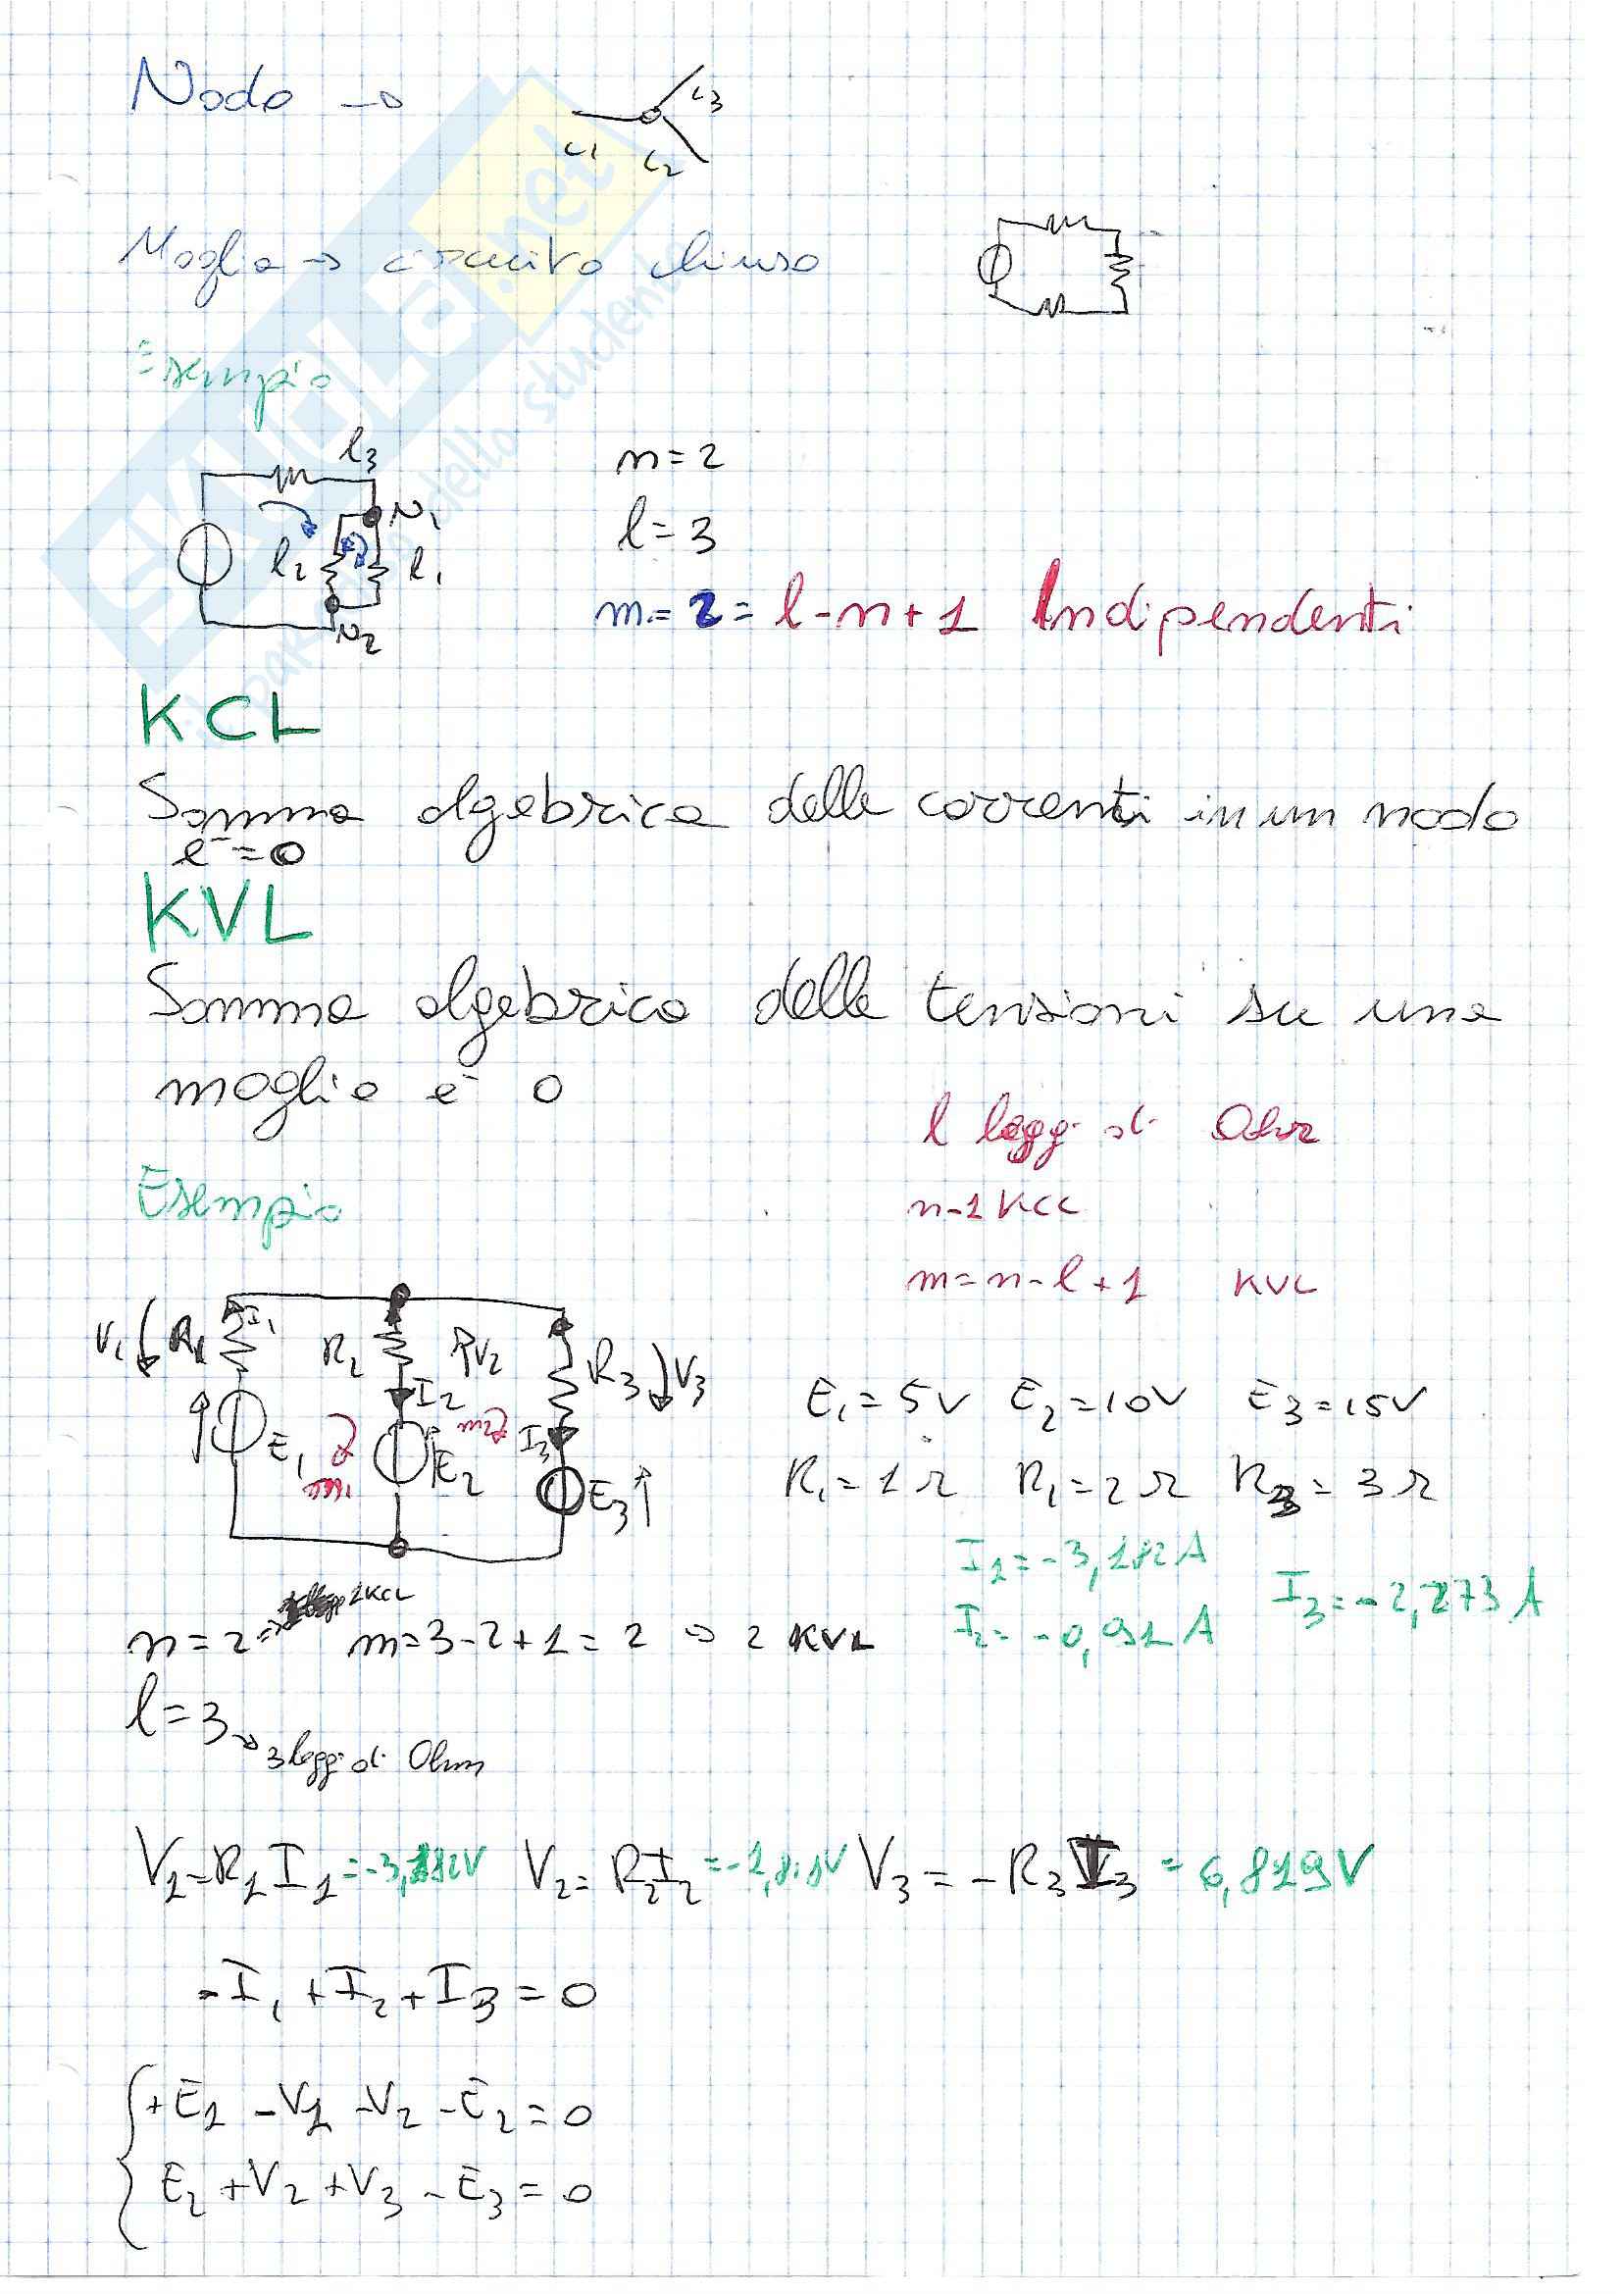 Nodo →
i1 i2 i3
Maglia → circuito chiuso
Esempio
l3
N1
l2 l1
N2
n=2
l=3
m=2=l-n+1 Indipendenti
KCL
Somma algebrica delle correnti in un nodo
è=0
KVL
Somma algebrica delle tensioni su una
maglia è 0
l leggi di Ohm
n-1 KCL
m=n-l+1 KVL
Esempio
V1 R1 I1 R2 V2 R3 V3
I2 m2 I3
E1 m1 E2 E3
E1=5V E2=10V E3=15V
R1=1Ω R1=2Ω R3=3Ω
I1=-3,182A
I2=-0,91A I3=-2,273A
1KCL
n=2⇒ m=3-2+1=2 → 2 KVL
l=3
→3 leggi di Ohm
V1=R1I1=-3,182V V2=R2I2 V3=-R3I3=6,819V
-I1+I2+I3=0
+E1-V1-V2-E2=0
E2+V2+V3-E3=0
SKUOLA.net
dello studente